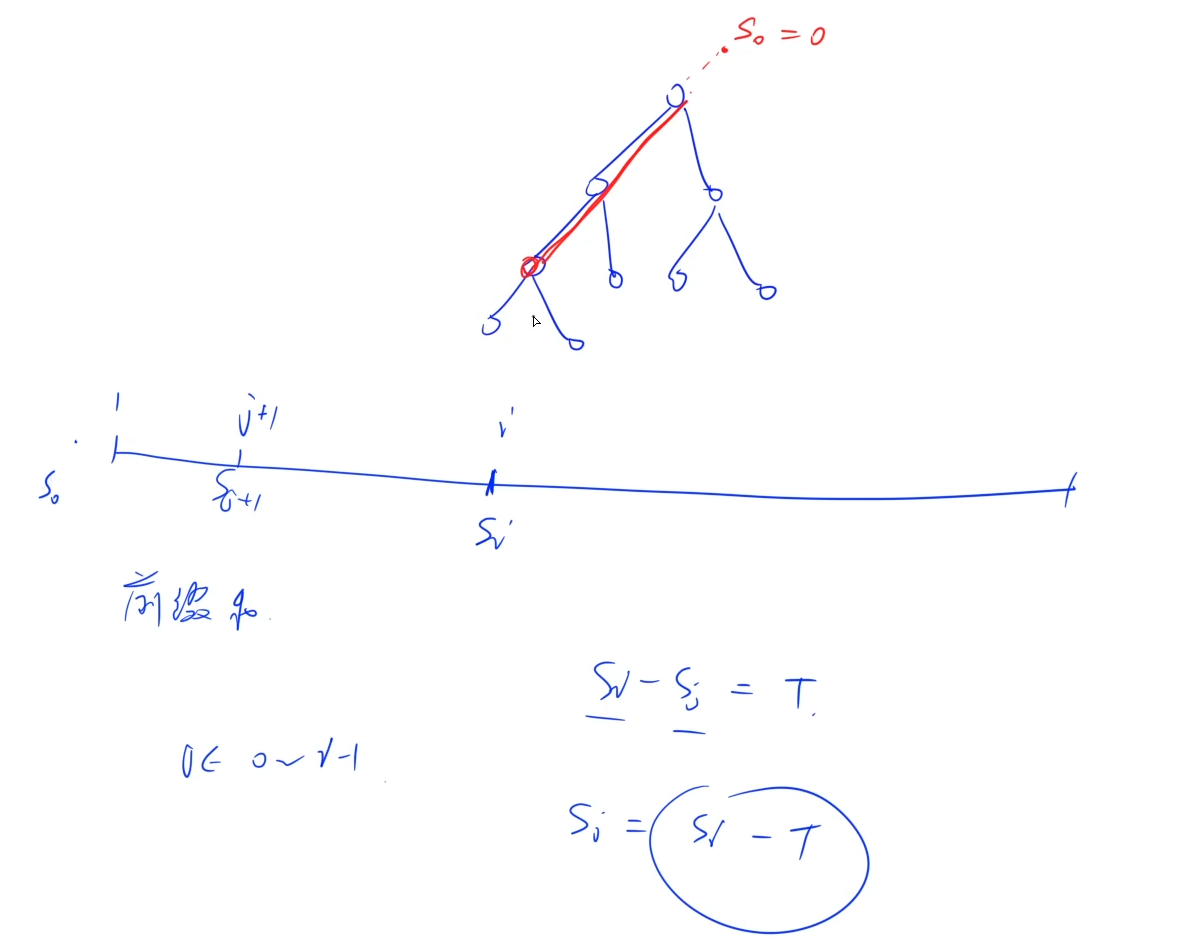 S₀ = 0
1 j+1 i
S₀ Sⱼ₊₁ Sᵢ
前缀和
Sᵢ - Sⱼ = T
j ∈ 0 ~ i-1
Sⱼ = Sᵢ - T